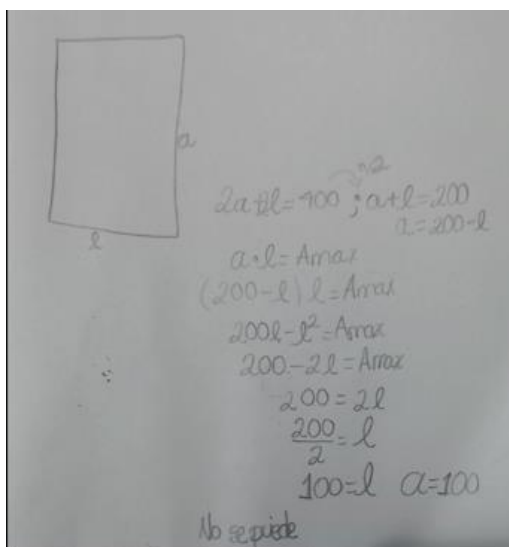 a
l
÷2
2a+2l=400 ; a+l=200
a=200-l
a·l=Amax
(200-l)l=Amax
200l-l²=Amax
200-2l=Amax
200=2l
200/2=l
100=l a=100
No se puede